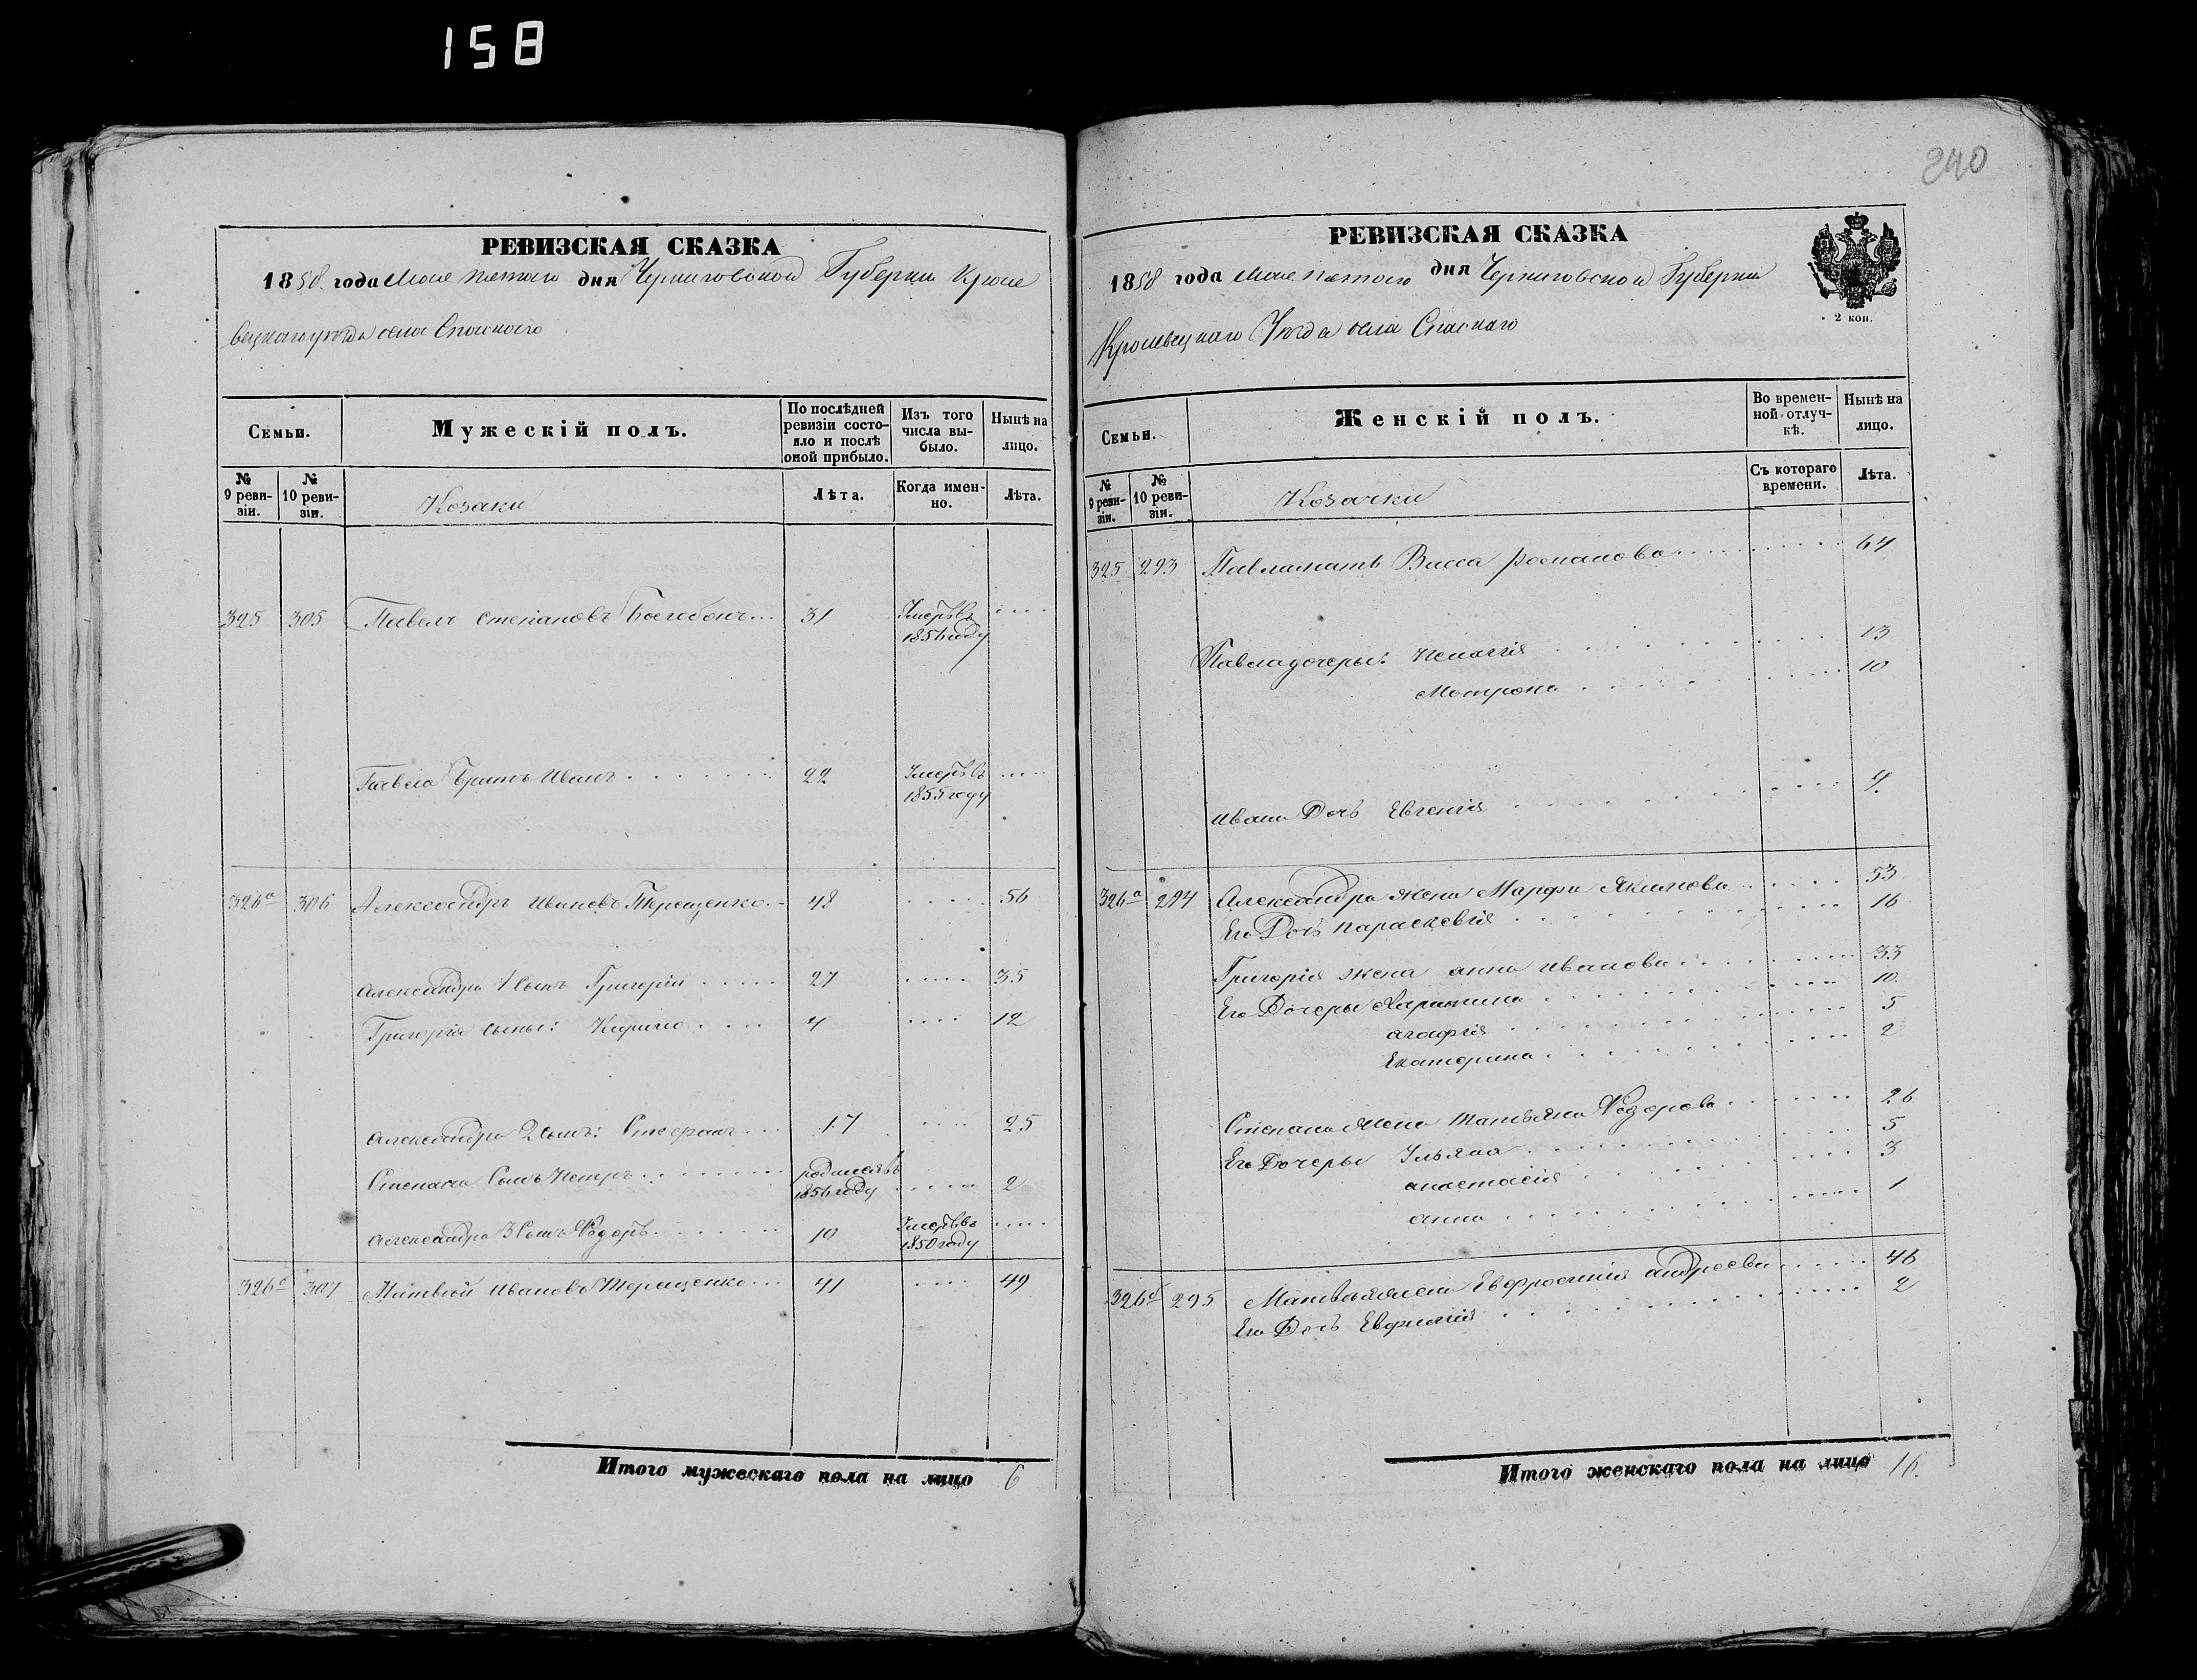 158
240
РЕВИЗСКАЯ СКАЗКА
1858 года Мая пятого дня Черниговской Губернии Кроле
вецкаго уезда села Спаского
Семьи.
Мужескій полъ.
По послѣдней ревизіи состояло и послѣ оной прибыло.
Изъ того числа выбыло.
Нынѣ на лицо.
№ 9 ревизіи.
№ 10 ревизіи.
Козаки
Лѣта.
Когда именно.
Лѣта.
325 305 Павелъ Степановъ 31 Умеръ въ 1856 году
Павла братъ Иванъ 22 Умеръ въ 1855 году
326а 306 Александръ Ивановъ Терещенко 48 56
Александра 1 сынъ Григорій 27 35
Григорія сыны: Кирило 4 12
Александра 2 сынъ: Степанъ 17 25
Степана сынъ Петръ родился въ 1856 году 2
Александра 3 сынъ Федоръ 10 Умеръ въ 1850 году
326 307 Матвей Ивановъ Терещенко 41 49
Итого мужескаго пола на лицо 6
РЕВИЗСКАЯ СКАЗКА
1858 года Мая пятого дня Черниговской Губернии
Кролевецкаго Уезда села Спаскаго
2 коп.
Семьи.
Женскій полъ.
Во временной отлучкѣ.
Нынѣ на лицо.
№ 9 ревизіи.
№ 10 ревизіи.
Козачки
Съ котораго времени.
Лѣта.
325 293 Павла мать Васса 64
Павла дочеры: Пелагія 13
Мотрона 10
Ивана Дочь Евгенія 9
326а 294 Александра жена Марфа Якимова 53
Его Дочь Параскевія 16
Григорія жена Анна Иванова 33
Его Дочеры Харитина 10
Агафія 5
Екатерина 2
Степана жена Татьяна Федорова 26
Его Дочеры Ульяна 5
Анастасія 3
Анна 1
326 295 Матвѣя жена Евфросинія Андреева 46
Его Дочь Евфимія 2
Итого женскаго пола на лицо 16.